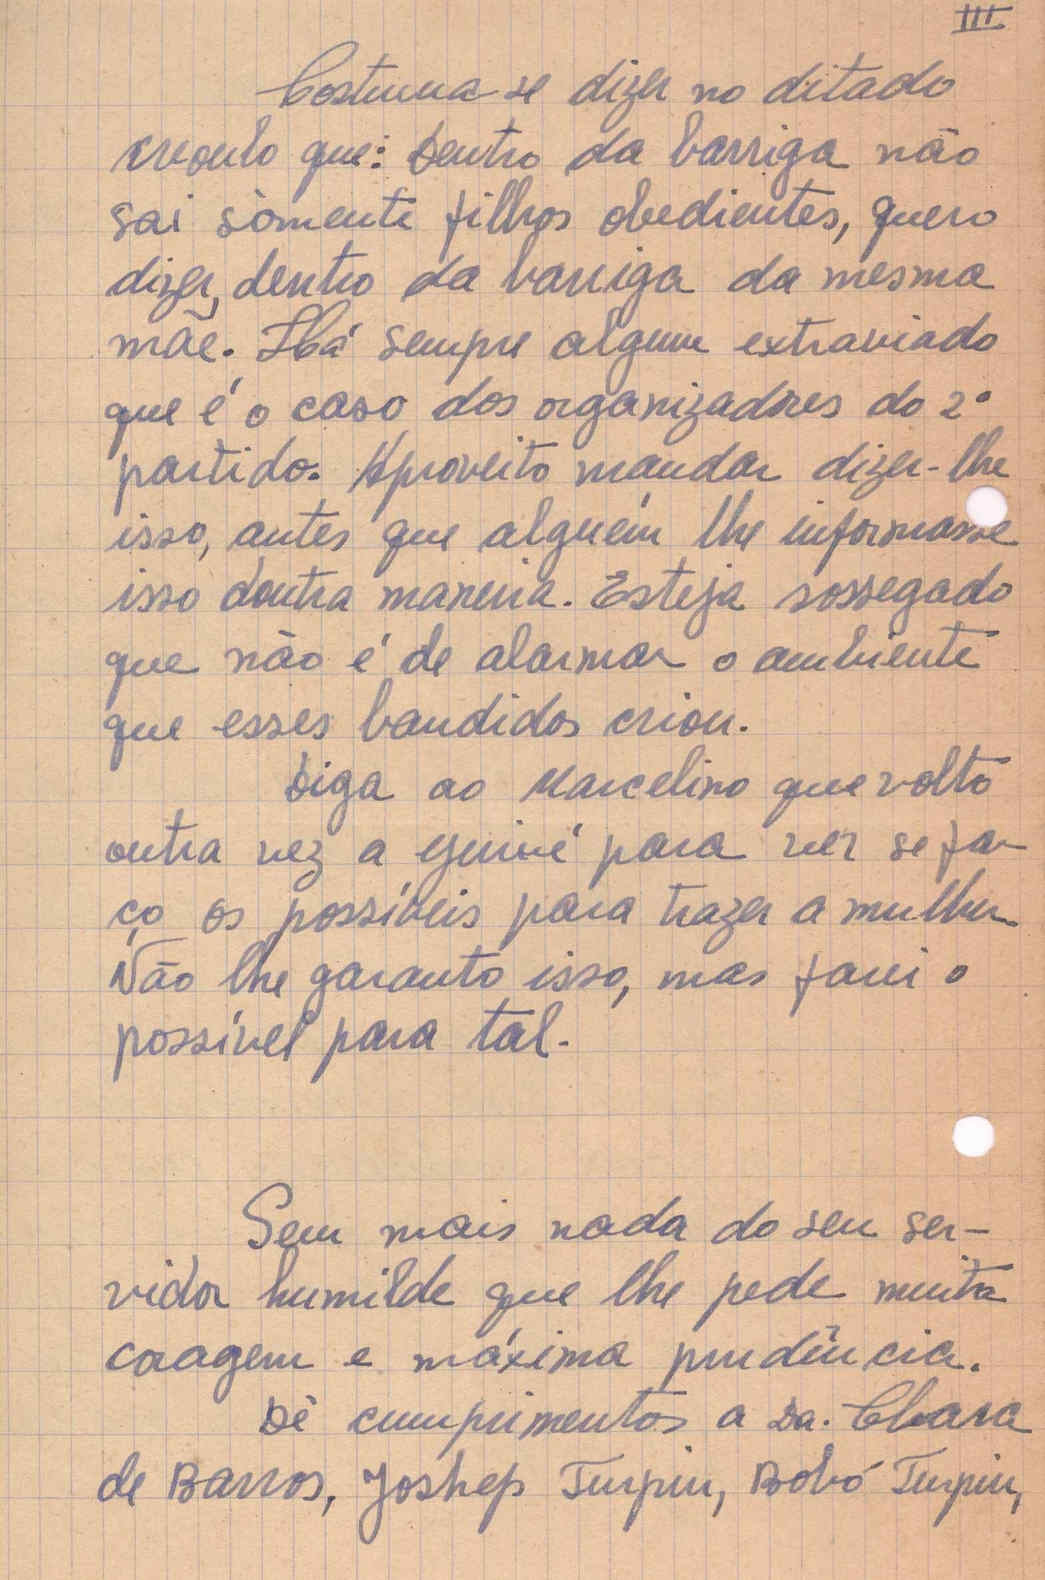 III
Costuma-se dizer no ditado
creoulo que: Dentro da barriga não
sai sòmente filhos obedientes, quero
dizer, dentro da barriga da mesma
mãe. Há sempre algum extraviado
que é o caso dos organizadores do 2º
partido. Aproveito mandar dizer-lhe
isso, antes que alguém lhe informasse
isso doutra maneira. Esteja sossegado
que não é de alarmar o ambiente
que esses bandidos criou.
Diga ao Marcelino que volto
outra vez a guiné para ver se fa-
ço os possíveis para trazer a mulher.
Não lhe garanto isso, mas farei o
possível para tal.
Sem mais nada do seu ser-
vidor humilde que lhe pede muita
coragem e máxima prudência.
Dê cumprimentos a Da. Clara
de Barros, Joshep Turpin, Bobó Turpin,